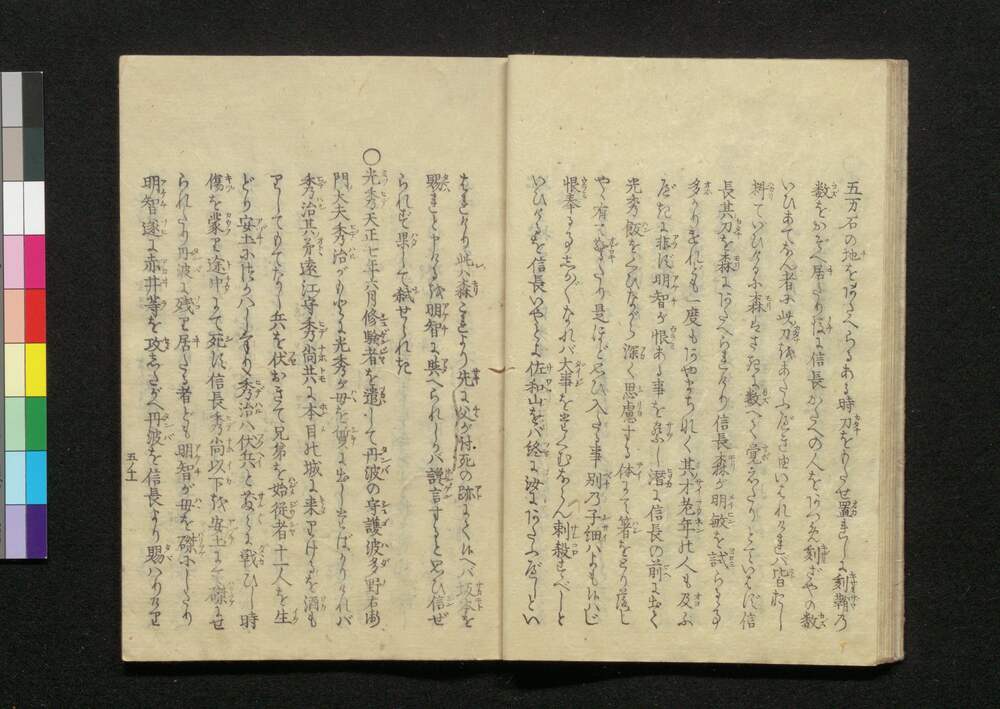 五万石の地をあたへらるある時刀をもたせ置れしに刻鞘乃
数をかぞへ居たり後に信長かたへの人をあつめ刻ざやの数
いひあてなん者に此刀をあたふべき由いはれければ皆おし
料ていひけるに森はさきに数へて覚えたりとていはず信
長其刀を森にあたへられけり信長森が明敏を試らるゝ事
多かりけれども一度もあやまちなく其才老年の人も及ぶ
べきに非ず明智が恨ある事を察し潜に信長の前に出て
光秀飯をくひながら深く思慮する体にて箸をとり落し
やゝ有て驚きたり是ほど思ひ入たる事別乃子細はよも候はじ
恨奉る事しか〴〵なれば大事を思くむならん刺殺すべしと
いひけるを信長いやとよ佐和山をば終に汝にあたふべしとい
はれけり此は森こゝより先に父が討死の跡にて候へば坂本を
賜れと申けるを明智に與へられしかば讒言すると思ひ信ぜ
られず果して弑せられたり
○光秀天正七年六月修験者を遣して丹波の守護波多野右衛
門大夫秀治がもとに光秀が母を質に出しさま〴〵はかりければ
秀治其弟遠江守秀尚共に本目の城に来りけるを酒も
りしてもてなし兵を伏おきて兄弟を始従者十一人を生
どり安土につかはしけり秀治は伏兵と散〴〵に戦ひし時
傷を蒙り途中にて死す信長秀尚以下を安土にて磔にせ
られたり丹波に残り居たる者ども明智が母を磔にしたり
明智遂に赤井等を攻したがへ丹波を信長より賜はりけり
五ノ十